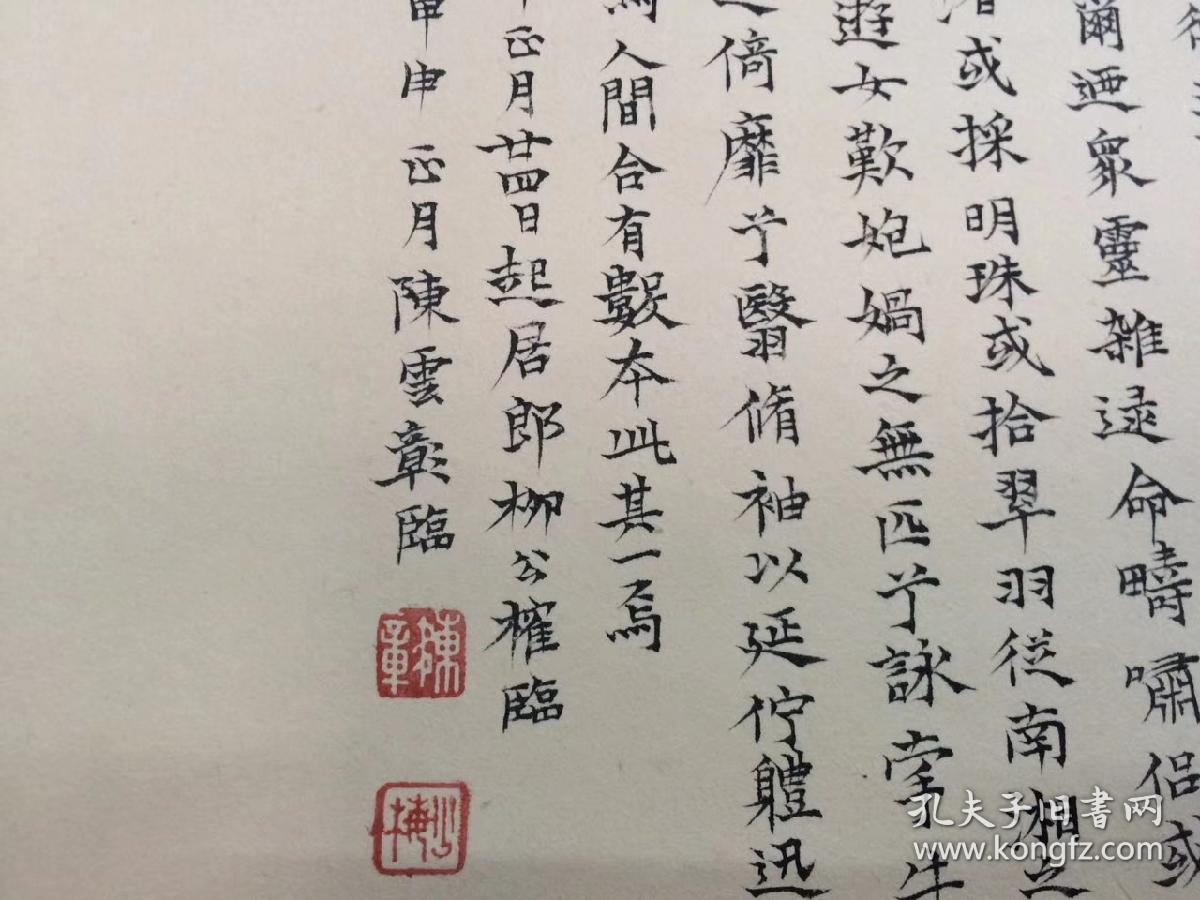 爾迺眾靈雜遝命疇嘯侶或
渚或採明珠或拾翠羽從南湘之
遊女歎匏媧之無匹兮詠牽牛
之倚靡兮翳脩袖以延佇軆迅
人間合有數本此其一焉
正月廿四日起居郎柳公權臨
甲申正月陳雲彰臨
陳
章
孔夫子旧书网
www.kongfz.com